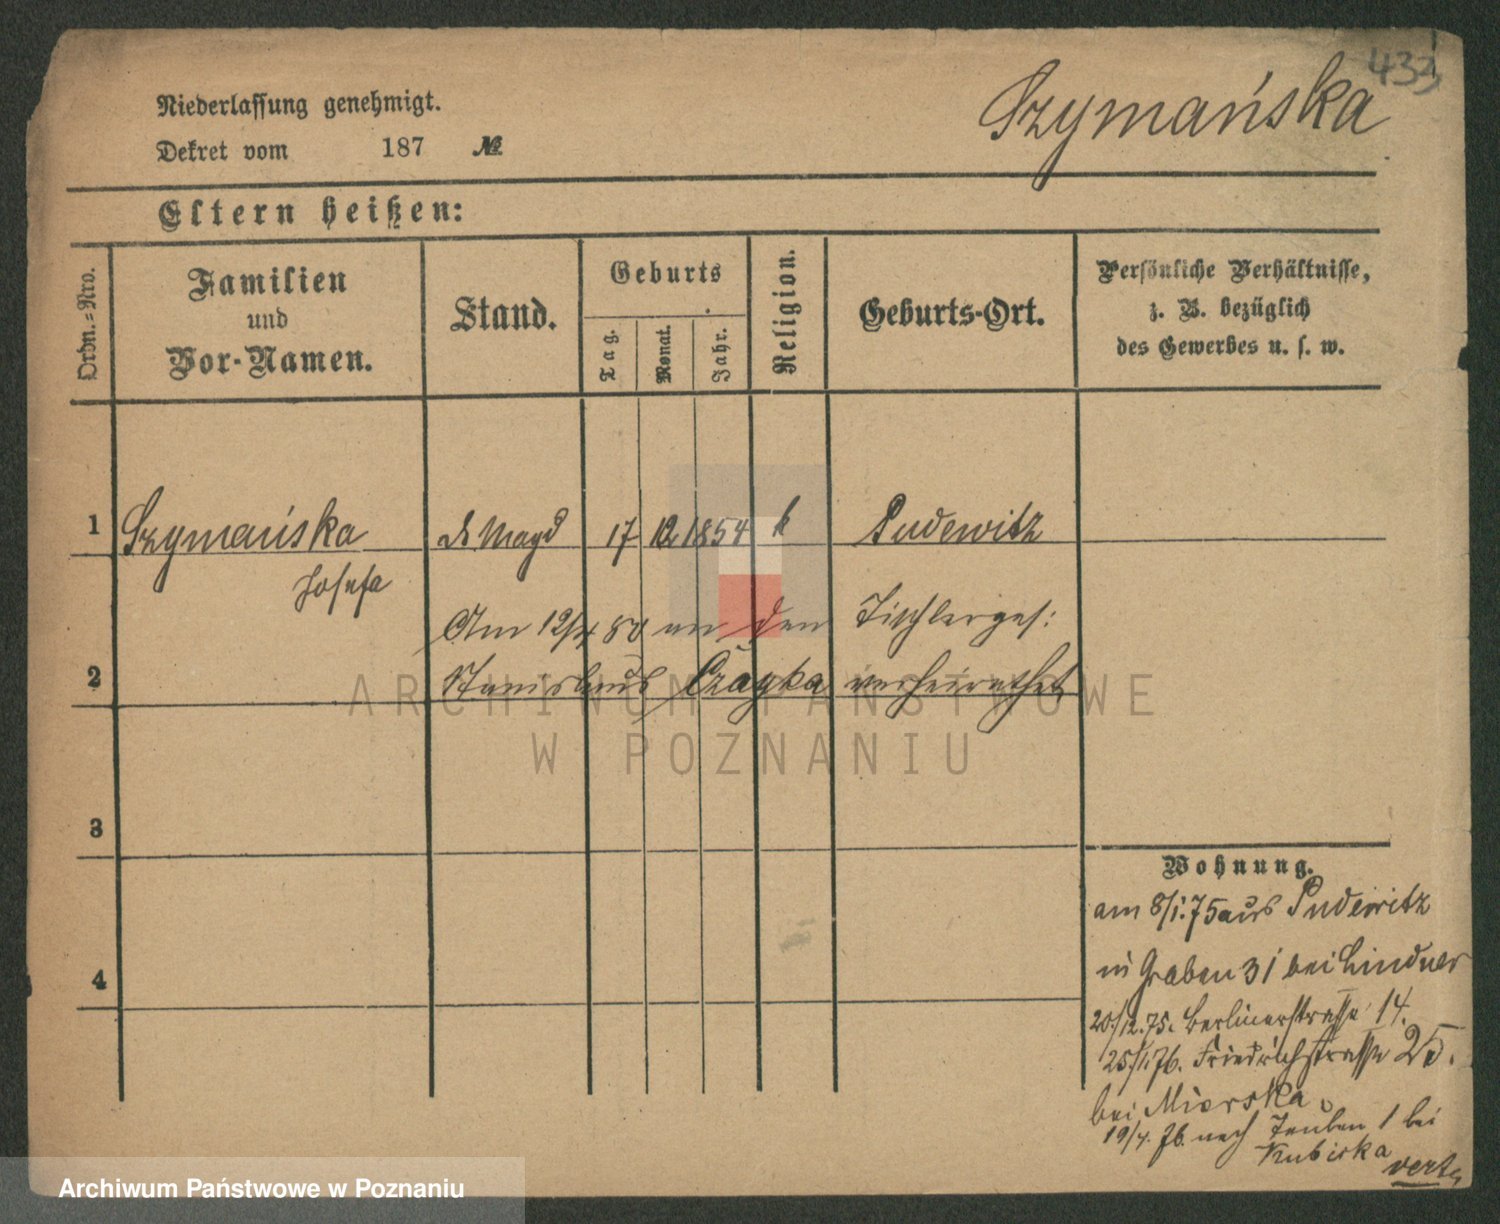 433
Niederlassung genehmigt.
Szymańska
Dekret vom 187 №
Eltern heißen:
Ordn.-Nro.
Familien
und
Vor-Namen.
Stand.
Geburts
Tag.
Monat.
Jahr.
Religion.
Geburts-Ort.
Persönliche Verhältnisse,
z. B. bezüglich
des Gewerbes u. s. w.
1 Szymańska d. Magd 17 12 1854 k Pudewitz
Josefa
Am 12/4 80 an den Tischlerges:
2 Stanislaus Czayka verheirathet
3
4
Wohnung.
am 8/1.75 aus Pudewitz
in Graben 31 bei Lindner
20/12.75. Berlinerstrasse 14.
25/1.76. Friedrichstrasse 25.
bei Mierska
19/4. 76. nach Teuben 1 bei
Kubicka
vert.
ARCHIWUM PAŃSTWOWE
W POZNANIU
Archiwum Państwowe w Poznaniu